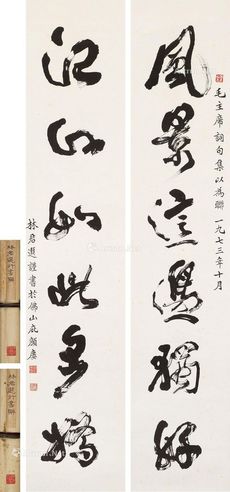 風景這邊獨好
毛主席詞句集以為聯 一九七三年十月
江山如此多嬌
林君選謹書於佛山
林君選行書聯
林君選行書聯